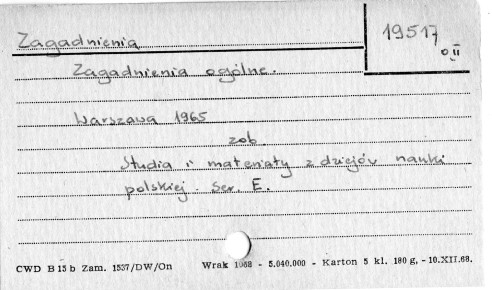 Zagadnienia
19517
o.II
Zagadnienia ogólne.
Warszawa 1965
zob.
Studia i materiały z dziejów nauki
polskiej. Ser. E.
CWD B 15 b Zam. 1537/DW/On Wrak 1968 - 5.040.000 - Karton 5 kl. 180 g, - 10.XII.68.